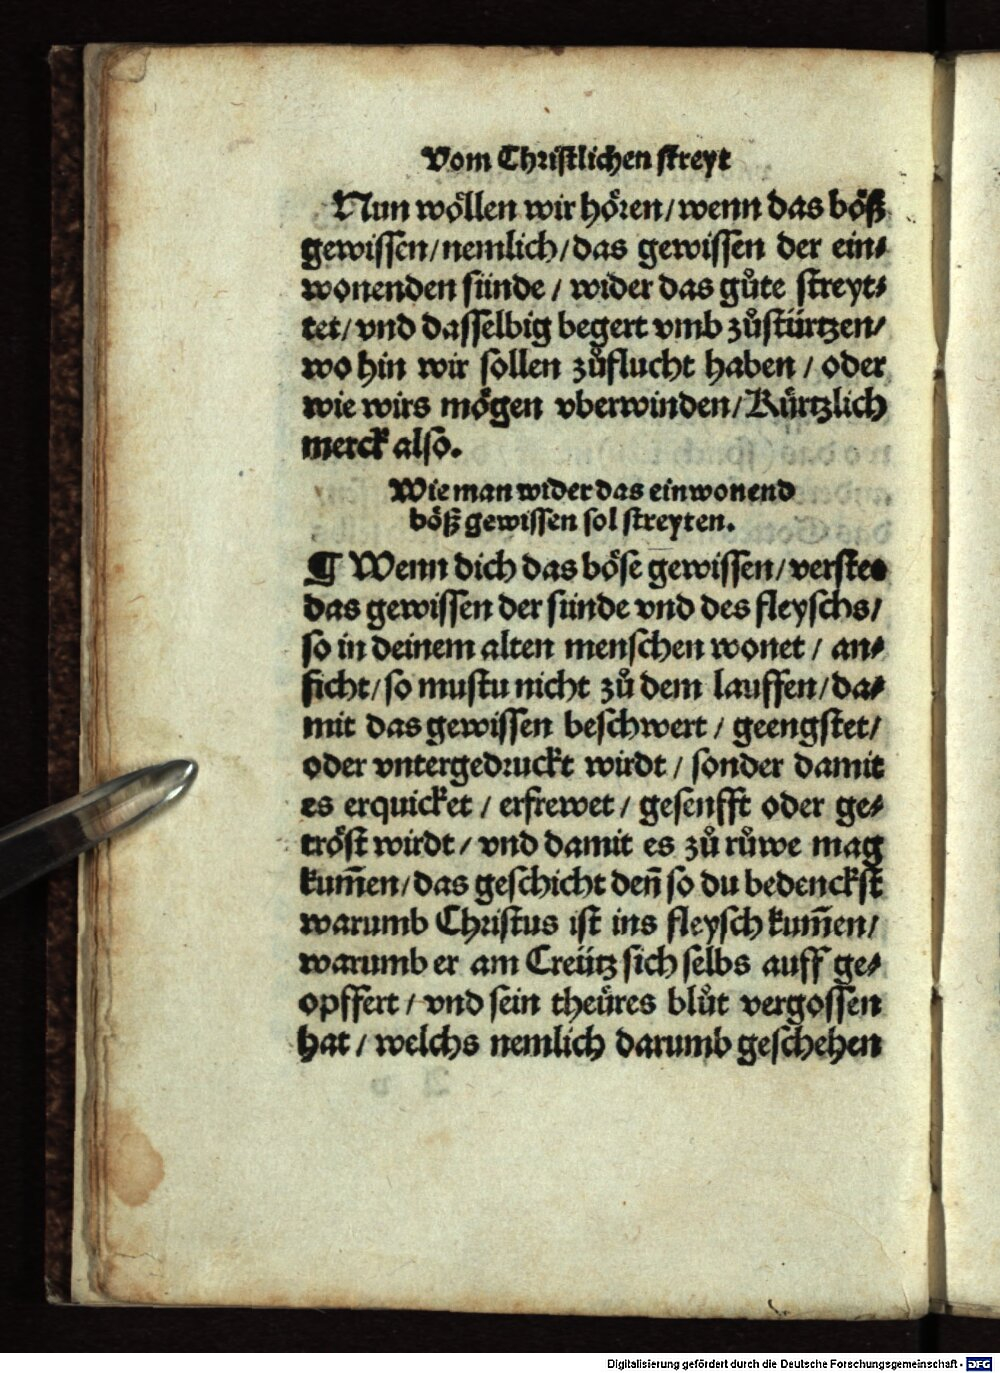 Vom Christlichen streyt
Nun wöllen wir hören/wenn das böß
gewissen/nemlich/das gewissen der ein⸗
wonenden sünde / wider das gůte streyt⸗
tet/vnd dasselbig begert vmb zůstürtzen/
wo hin wir sollen zůflucht haben / oder
wie wirs mögen vberwinden/Kürtzlich
merck also.
Wie man wider das einwonend
böß gewissen sol streyten.
¶ Wenn dich das böse gewissen/verstee
das gewissen der sünde vnd des fleyschs/
so in deinem alten menschen wonet / an⸗
ficht/so mustu nicht zů dem lauffen/da⸗
mit das gewissen beschwert / geengstet/
oder vntergedruckt wirdt / sonder damit
es erquicket / erfrewet / gesenfft oder ge⸗
tröst wirdt / vnd damit es zů růwe mag
kum̃en/das geschicht deñ so du bedenckst
warumb Christus ist ins fleysch kum̃en/
warumb er am Creütz sich selbs auff ge⸗
opffert / vnd sein theüres blůt vergossen
hat / welchs nemlich darumb geschehen
Digitalisierung gefördert durch die Deutsche Forschungsgemeinschaft - DFG